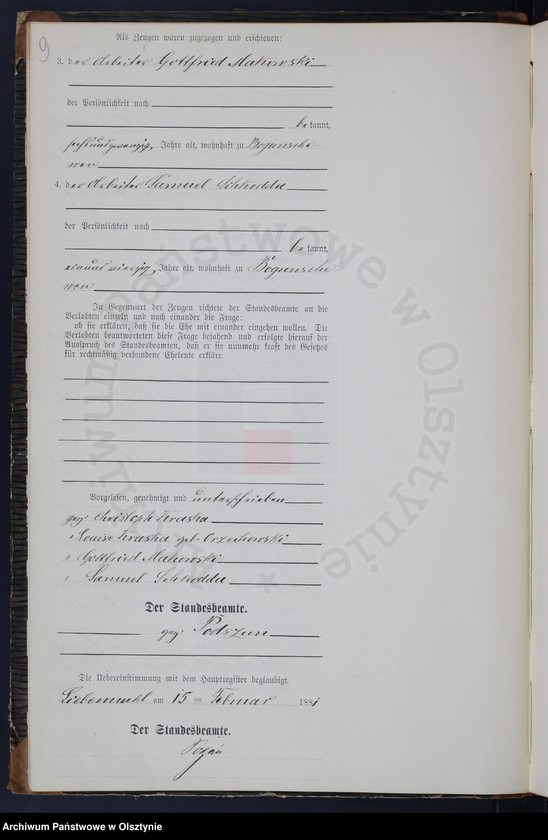 9
Als Zeugen waren zugezogen und erschienen:
3. der Arbeiter Gottfried Makowski
der Persönlichkeit nach
be kannt,
sechsundzwanzig Jahre alt, wohnhaft zu Bogunsche
wen
4. der Arbeiter Samuel Schkodda
der Persönlichkeit nach
be kannt,
einundvierzig Jahre alt, wohnhaft zu Bogunsche
wen
In Gegenwart der Zeugen richtete der Standesbeamte an die
Verlobten einzeln und nach einander die Frage:
ob sie erklären, daß sie die Ehe mit einander eingehen wollen. Die
Verlobten beantworteten diese Frage bejahend und erfolgte hierauf der
Ausspruch des Standesbeamten, daß er sie nunmehr kraft des Gesetzes
für rechtmäßig verbundene Eheleute erkläre.
Vorgelesen, genehmigt und unterschrieben
gez: Christoph Kraska
" Louise Kraska geb. Orzechowski
" Gottfried Makowski
" Samuel Schkodda
Der Standesbeamte.
gez: Podszun
Die Uebereinstimmung mit dem Hauptregister beglaubigt.
Liebemuehl am 15 ten Februar 1881
Der Standesbeamte.
Archiwum Państwowe w Olsztynie
Archiwum Państwowe w Olsztynie